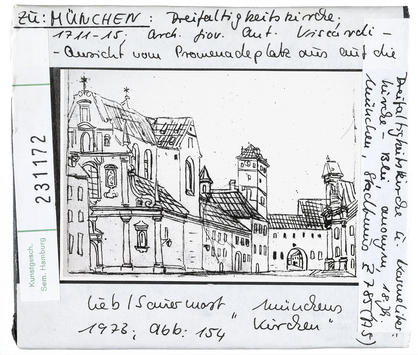 Zu: MÜNCHEN: Dreifaltigkeitskirche,
1711-15; arch. Giov. Ant. Viscardi -
- Ansicht vom Promenadeplatz aus auf die
Dreifaltigkeitskirche u. Karmeliter-
kirche - Blei, anonym, 18. Jh.
München, Stadtmus Z 785 (A5)
231172
Kunstgesch.
Sem. Hamburg
Lieb/Sauermost "Münchens
1973; Abb: 154 Kirchen"